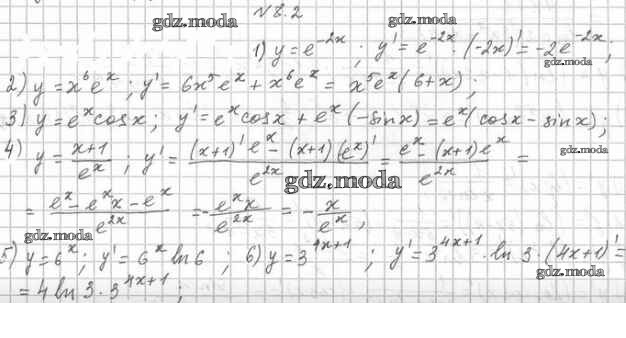 № 8.2
gdz.moda gdz.moda
1) y = e^{-2x}; y' = e^{-2x} · (-2x)' = -2e^{-2x};
gdz.moda
2) y = x⁶eˣ; y' = 6x⁵eˣ + x⁶eˣ = x⁵eˣ(6+x);
3) y = eˣcosx; y' = eˣcosx + eˣ(-sinx) = eˣ(cosx - sinx);
4) y = (x+1)/eˣ; y' = ((x+1)'eˣ - (x+1)(eˣ)')/e^{2x} = (eˣ - (x+1)eˣ)/e^{2x} =
gdz.moda
gdz.moda
= (eˣ - eˣx - eˣ)/e^{2x} = -eˣx/e^{2x} = -x/eˣ,
gdz.moda
5) y = 6ˣ; y' = 6ˣ ln6; 6) y = 3^{4x+1}; y' = 3^{4x+1} · ln3 · (4x+1)' =
gdz.moda
= 4 ln3 · 3^{4x+1};